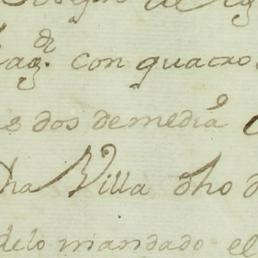 con quatro
s dos de media
ha Villa dho d
delo mandado el